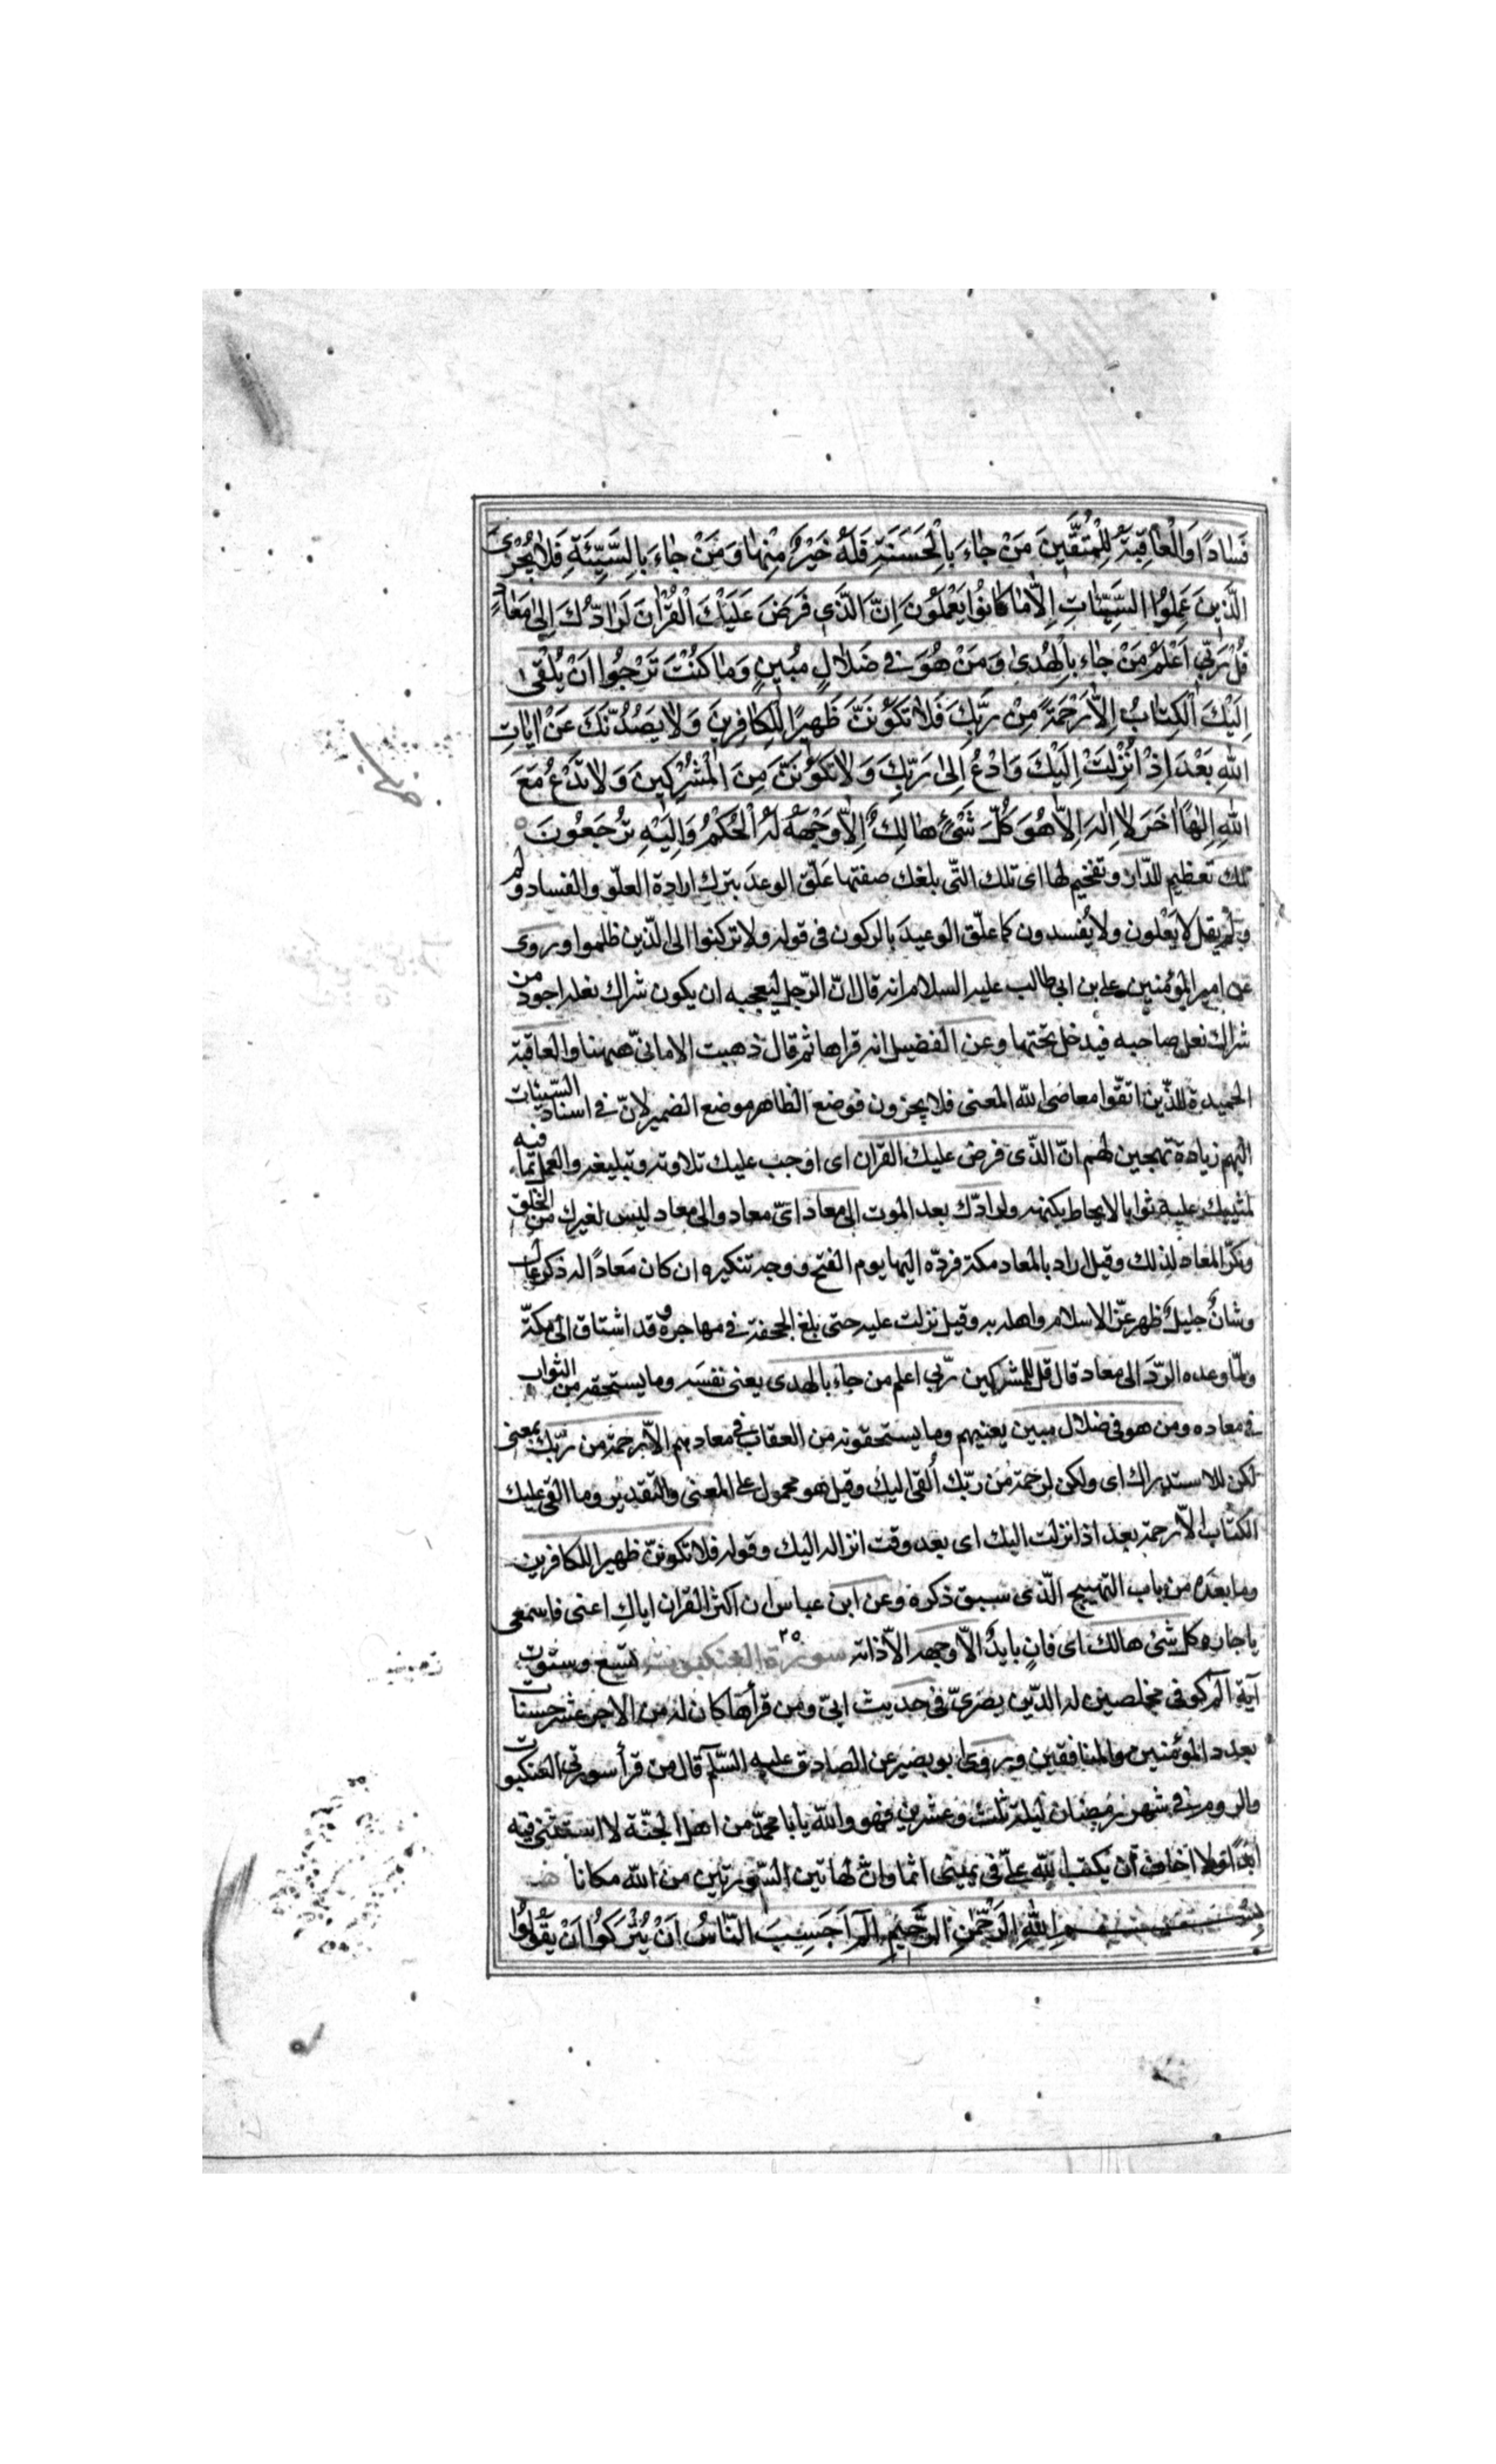 فَسَادًا وَالْعَاقِبَةُ لِلْمُتَّقِينَ مَنْ جَاءَ بِالْحَسَنَةِ فَلَهُ خَيْرٌ مِنْهَا وَمَنْ جَاءَ بِالسَّيِّئَةِ فَلَا يُجْزَى
الَّذِينَ عَمِلُوا السَّيِّئَاتِ إِلَّا مَا كَانُوا يَعْمَلُونَ إِنَّ الَّذِي فَرَضَ عَلَيْكَ الْقُرْآنَ لَرَادُّكَ إِلَى مَعَادٍ
قُلْ رَبِّي أَعْلَمُ مَنْ جَاءَ بِالْهُدَى وَمَنْ هُوَ فِي ضَلَالٍ مُبِينٍ وَمَا كُنْتَ تَرْجُوا أَنْ يُلْقَى
إِلَيْكَ الْكِتَابُ إِلَّا رَحْمَةً مِنْ رَبِّكَ فَلَا تَكُونَنَّ ظَهِيرًا لِلْكَافِرِينَ وَلَا يَصُدُّنَّكَ عَنْ آيَاتِ
اللهِ بَعْدَ إِذْ أُنْزِلَتْ إِلَيْكَ وَادْعُ إِلَى رَبِّكَ وَلَا تَكُونَنَّ مِنَ الْمُشْرِكِينَ وَلَا تَدْعُ مَعَ
اللهِ إِلَهًا آخَرَ لَا إِلَهَ إِلَّا هُوَ كُلُّ شَيْءٍ هَالِكٌ إِلَّا وَجْهَهُ لَهُ الْحُكْمُ وَإِلَيْهِ تُرْجَعُونَ
تلك تعظيم للدّار وتفخيم لها اى تلك التّى بلغك صفتها علّق الوعد بترك ارادة العلّو والفساد ولم
يقل لا يَعْلون ولا يُفسدون كما علّق الوعيدَ بالركون فى قوله ولا تركنوا الى الّذين ظلموا وروى
عن امير المؤمنين على بن ابى طالب عليه السلام انه قال انّ الرّجل ليعجبه ان يكون شراك نعله اجود من
شراك نعل صاحبه فيدخل تحتها وعن الفضيل انه قراها ثم قال ذهبت الامانىّ ههنا والعاقبة
الحميدة للذّين اتقّوا معاصى الله المعنى فلا يجزون فوضع الظاهر موضع الضمير لانّ فى اسناد السّيئات
اليهم زيادة تهجين لهم انّ الذّى فرض عليك القران اى اوجب عليك تلاوته وتبليغه والعمل بما فيه
لمثيبك عليه ثوابا لا يحاط بكنهه ولرادّك بعد الموت الى معاد اىّ معاد والى معاد ليس لغيرك من الخلق
ونكّر المعاد لذلك وقيل اراد بالمعاد مكة فردّه اليها يوم الفتح ووجه تنكيره ان كان مَعادًا له ذكر عال
وشانٌ جليلٌ ظهر عزّ الاسلام واهله به وقيل نزلت عليه حتى بلغ الجحفة فى مهاجره وقد اشتاق الى مكّة
ولمّا وعده الرّدَّ الى معاد قال قل للمشركين ربّى اعلم من جاءَ بالهدى يعنى نفسَه وما يستحقه من الثواب
فى معاده ومن هو فى ضلال مبين يعنيهم وما يستحقونه من العقاب فى معادهم الاّ رحمة من ربّك بمعنى
لكن للاستدراك اى ولكن لرحمة من ربّك أُلقى اليك وقيل هو محمول على المعنى والتّقدير وما القى عليك
الكتاب الاّ رحمة بعد اذ انزلت اليك اى بعد وقت انزاله اليك وقوله فلا تكوننّ ظهيرا للكافرين
وما بعدَه من باب التهييج الّذى سبق ذكره وعن ابن عباس ان اكثر القران اياكِ اعنى فاسمعى
يا جاره كل شئ هالك اى فانٍ بايدٌ الاّ وجهه الاّ ذاته سورة العنكبوت تسع وستون
آية الم كوفى مخلصين له الدّين بصرىّ فى حديث ابىّ ومن قرأها كان له من الاجر عشر حسنات
بعدد المؤمنين والمنافقين وروى ابو بصير عن الصادق عليه السّلم قال من قرأ سورتى العنكبوت
والروم فى شهر رمضان ليلة ثلث وعشرين فهو والله يا با محمّد من اهل الجنّة لا استثنى فيه
ابدًا ولا اخاف أن يكتب الله علىّ فى يمينى اثما وانّ لهاتين السّورتين من الله مكانا
بِسْمِ اللهِ الرَّحْمَنِ الرَّحِيمِ الم أَحَسِبَ النَّاسُ أَنْ يُتْرَكُوا أَنْ يَقُولُوا